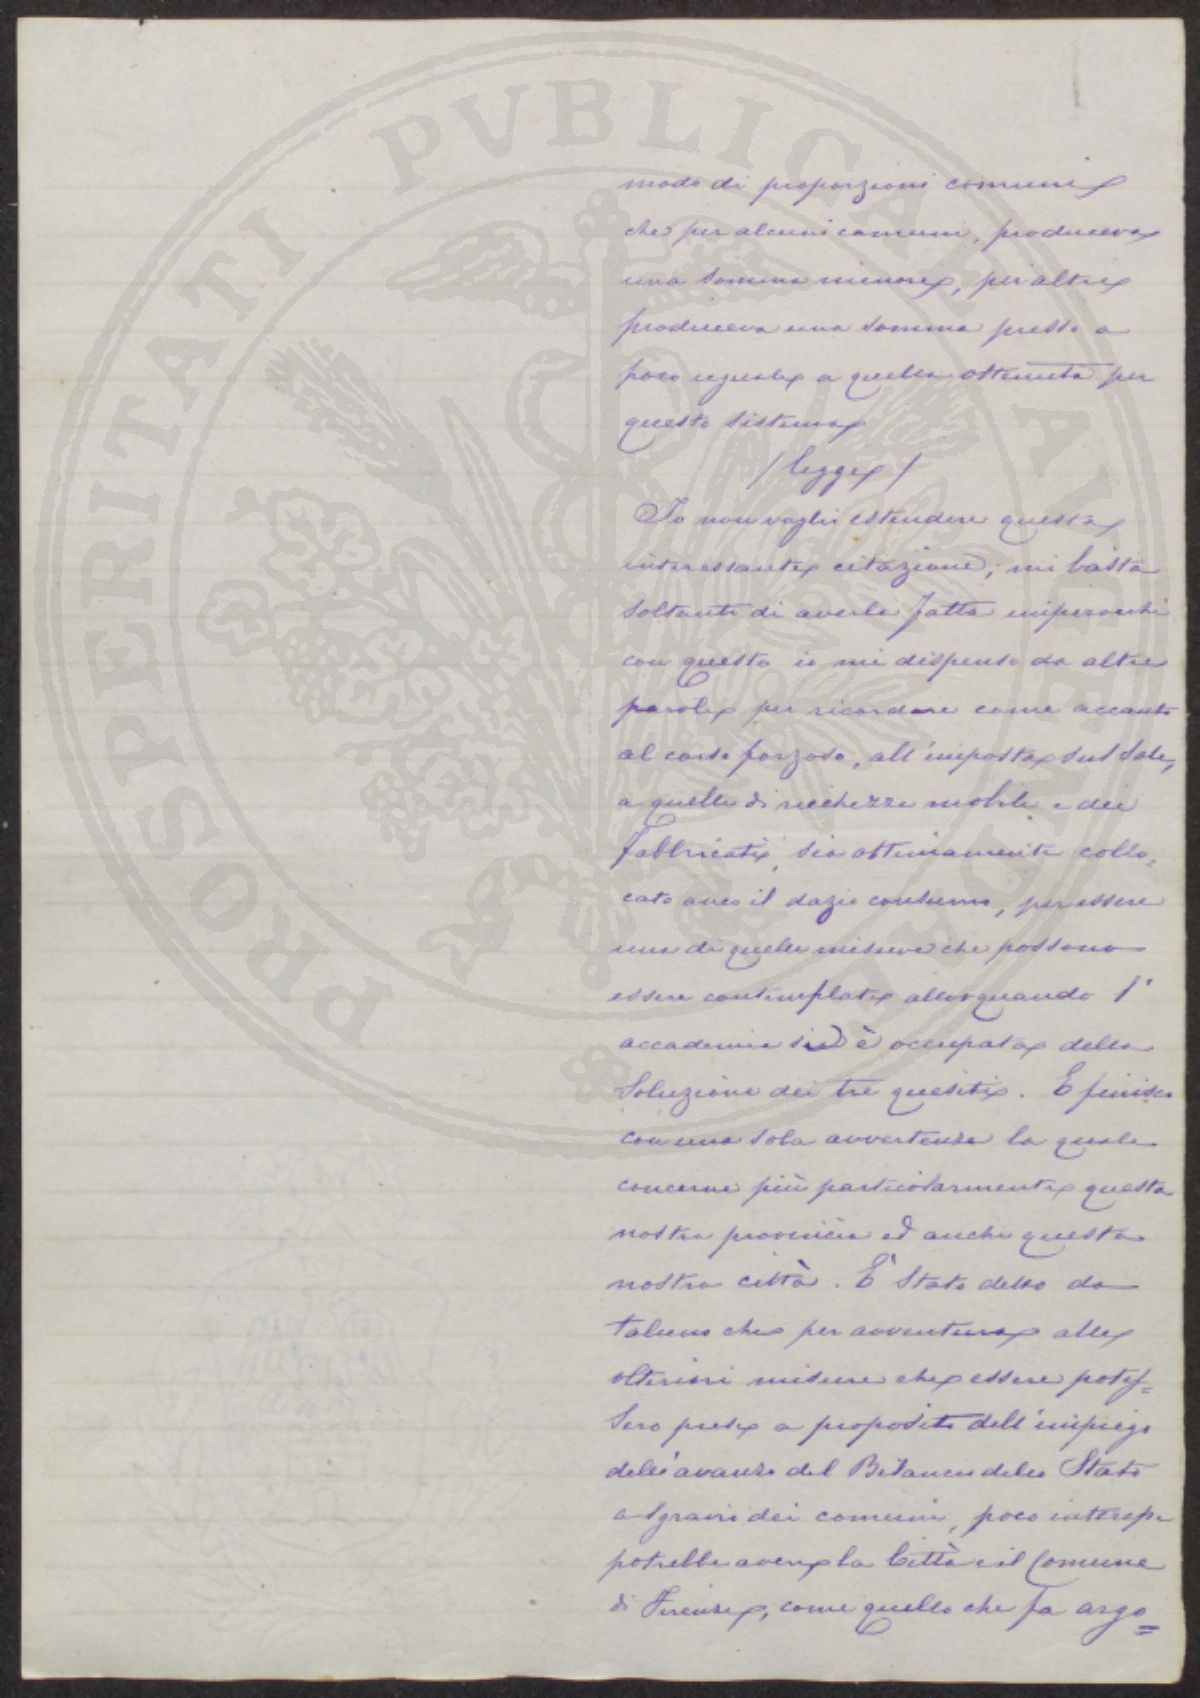 PROSPERITATI PUBLICAE AUGENDAE
modo di proporzioni comuni
che per alcuni comuni, produceva
una somma minore, per altri
produceva una somma presso a
poco uguale a quella ottenuta per
questo sistema
/ legge /
Io non voglio estendere questa
interessante citazione; mi basta
soltanto di averla fatta imperocchè
con questo io mi dispenso da altre
parole per ricordare come accanto
al corso forzoso, all'imposta sul sale,
a quella di ricchezza mobile e dei
fabbricati, sia ottimamente collo=
cato anco il dazio consumo, per essere
una di quelle misure che possano
essere contemplate allorquando l'
accademia si è occupata della
soluzione dei tre quesiti. E finisco
con una sola avvertenza la quale
concerne più particolarmente questa
nostra provincia ed anche questa
nostra città. È stato detto da
taluno che per avventura alle
ulteriori misure che essere potes=
sero prese a proposito dell'impiego
dell'avanzo del Bilancio dello Stato
a sgravio dei comuni, poco interesse
potrebbe avere la Città e il Comune
di Firenze, come quello che fa argo=